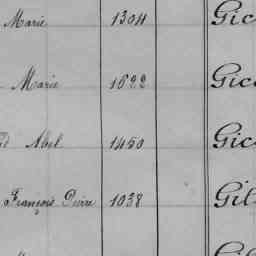 Marie 1304 Gic
Marie 1622 Gic
d Abel 1450 Gic
François Pierre 1038 Gil